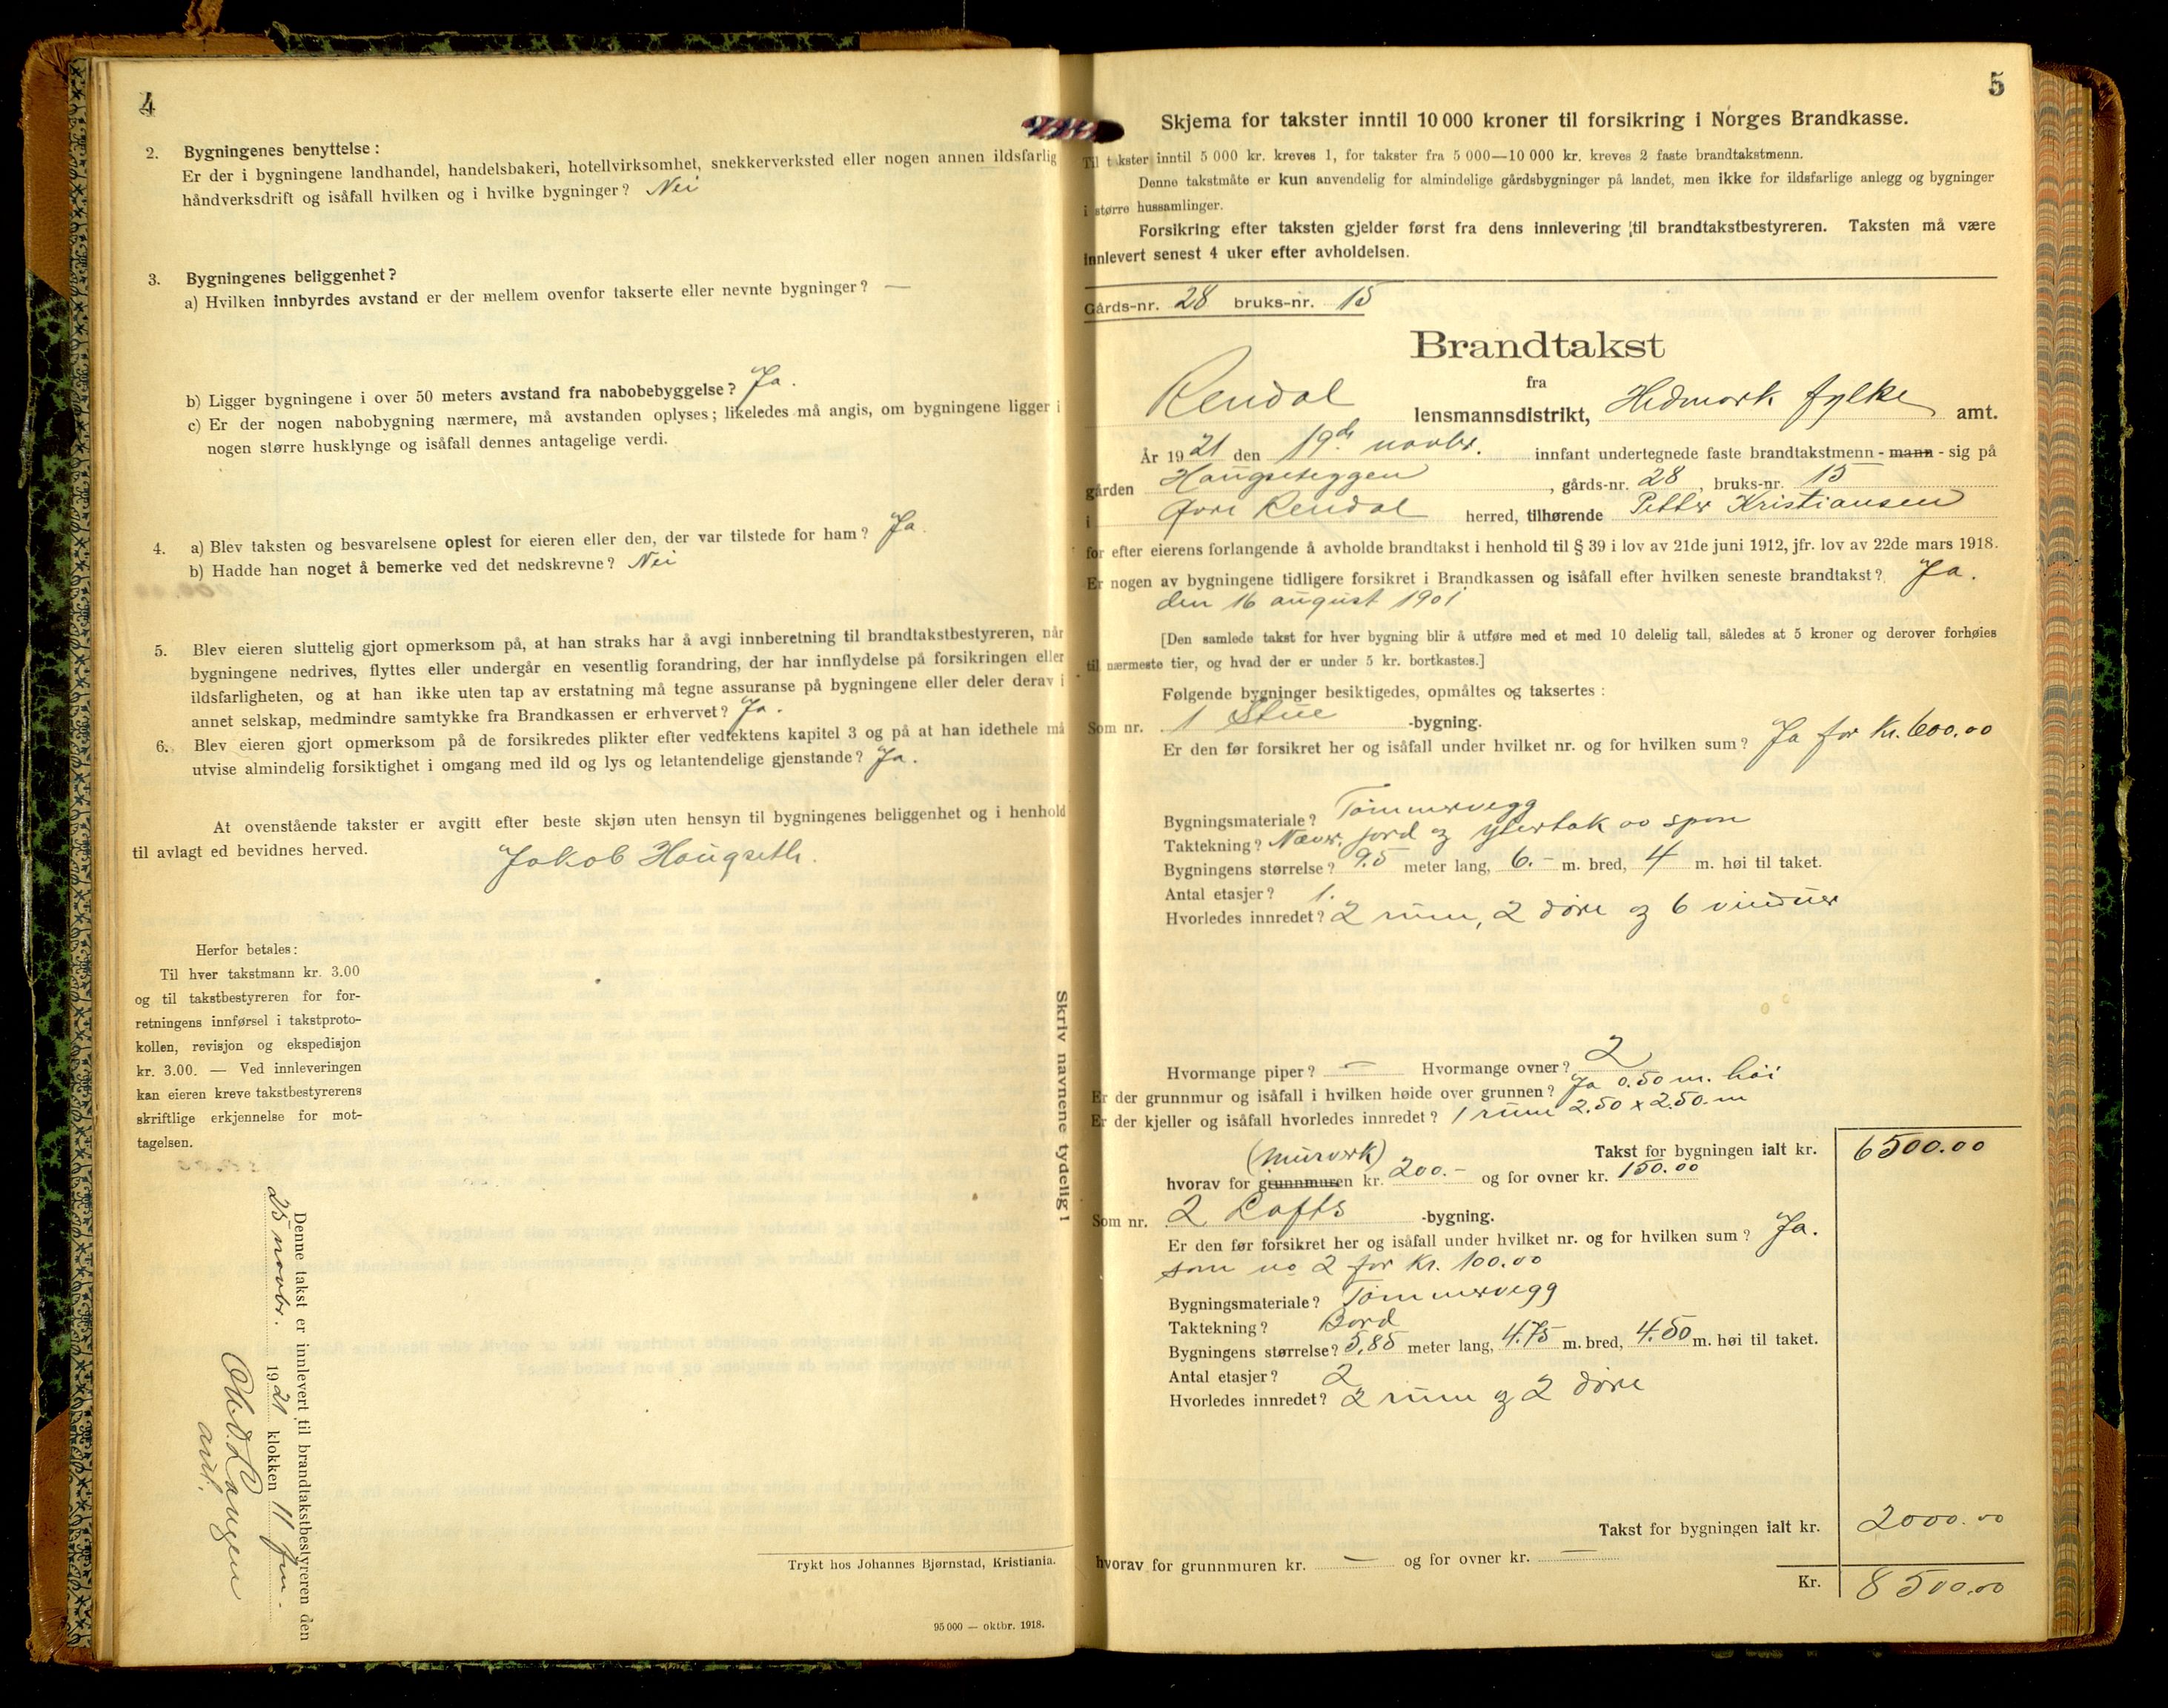 4
2. Bygningenes benyttelse :
Er der i bygningene landhandel, handelsbakeri, hotellvirksomhet, snekkerverksted eller nogen annen ildsfarlig
håndverksdrift og isåfall hvilken og i hvilke bygninger? Nei
3. Bygningenes beliggenhet?
a) Hvilken innbyrdes avstand er der mellem ovenfor takserte eller nevnte bygninger? —
b) Ligger bygningene i over 50 meters avstand fra nabobebyggelse? Ja.
c) Er der nogen nabobygning nærmere, må avstanden oplyses; likeledes må angis, om bygningene ligger i
nogen større husklynge og isåfall dennes antagelige verdi.
4. a) Blev taksten og besvarelsene oplest for eieren eller den, der var tilstede for ham? Ja.
b) Hadde han noget å bemerke ved det nedskrevne? Nei
5. Blev eieren sluttelig gjort opmerksom på, at han straks har å avgi innberetning til brandtakstbestyreren, når
bygningene nedrives, flyttes eller undergår en vesentlig forandring, der har innflydelse på forsikringen eller
ildsfarligheten, og at han ikke uten tap av erstatning må tegne assuranse på bygningene eller deler derav i
annet selskap, medmindre samtykke fra Brandkassen er erhvervet? Ja.
6. Blev eieren gjort opmerksom på de forsikredes plikter efter vedtektens kapitel 3 og på at han idethele må
utvise almindelig forsiktighet i omgang med ild og lys og letantendelige gjenstande? Ja.
At ovenstående takster er avgitt efter beste skjøn uten hensyn til bygningenes beliggenhet og i henhold
til avlagt ed bevidnes herved.
Jakob Haugseth.
Herfor betales:
Til hver takstmann kr. 3.00
og til takstbestyreren for for-
retningens innførsel i takstproto-
kollen, revisjon og ekspedisjon
kr. 3.00. — Ved innleveringen
kan eieren kreve takstbestyrerens
skriftlige erkjennelse for mot-
tagelsen.
Denne takst er innlevert til brandtakstbestyreren den
25 novbr. 1921 klokken 11 fm.
Langen
Skriv navnene tydelig!
Trykt hos Johannes Bjørnstad, Kristiania.
95 000 — oktbr. 1918.
5
Skjema for takster inntil 10 000 kroner til forsikring i Norges Brandkasse.
Til takster inntil 5 000 kr. kreves 1, for takster fra 5 000—10 000 kr. kreves 2 faste brandtakstmenn.
Denne takstmåte er kun anvendelig for almindelige gårdsbygninger på landet, men ikke for ildsfarlige anlegg og bygninger
i større hussamlinger.
Forsikring efter taksten gjelder først fra dens innlevering til brandtakstbestyreren. Taksten må være
innlevert senest 4 uker efter avholdelsen.
Gårds-nr. 28 bruks-nr. 15
Brandtakst
fra
Rendal lensmannsdistrikt, Hedmark fylke amt.
År 1921 den 19de novbr. innfant undertegnede faste brandtakstmenn - mann - sig på
gården Haugseteggen, gårds-nr. 28, bruks-nr. 15
i Øvre Rendal herred, tilhørende Petter Kristiansen
for efter eierens forlangende å avholde brandtakst i henhold til § 39 i lov av 21de juni 1912, jfr. lov av 22de mars 1918.
Er nogen av bygningene tidligere forsikret i Brandkassen og isåfall efter hvilken seneste brandtakst? Ja.
den 16 august 1901
[Den samlede takst for hver bygning blir å utføre med et med 10 delelig tall, således at 5 kroner og derover forhøies
til nærmeste tier, og hvad der er under 5 kr. bortkastes.]
Følgende bygninger besiktigedes, opmåltes og taksertes :
Som nr. 1 Stue -bygning.
Er den før forsikret her og isåfall under hvilket nr. og for hvilken sum? Ja for Kr. 600.00
Bygningsmateriale? Tømmervegg
Taktekning? Næver, jord og ytertak av spon
Bygningens størrelse? 9.5 meter lang, 6.- m. bred, 4 m. høi til taket.
Antal etasjer? 1.
Hvorledes innredet? 2 rum, 2 døre og 6 vinduer
Hvormange piper? — Hvormange ovner? 2
Er der grunnmur og isåfall i hvilken høide over grunnen? Ja 0.50 m. høi
Er der kjeller og isåfall hvorledes innredet? 1 rum 2.50 x 2.50 m
Takst for bygningen ialt kr. 6500.00
(murverk)
hvorav for grunnmuren kr. 200.- og for ovner kr. 150.00
Som nr. 2 Lofts -bygning.
Er den før forsikret her og isåfall under hvilket nr. og for hvilken sum? Ja.
som no 2 for Kr. 100.00
Bygningsmateriale? Tømmervegg
Taktekning? Bord
Bygningens størrelse? 5,85 meter lang, 4.75 m. bred, 4.50 m. høi til taket.
Antal etasjer? 2
Hvorledes innredet? 2 rum og 2 døre
Takst for bygningen ialt kr. 2000.00
hvorav for grunnmuren kr. — og for ovner kr. —
Kr. 8500.00